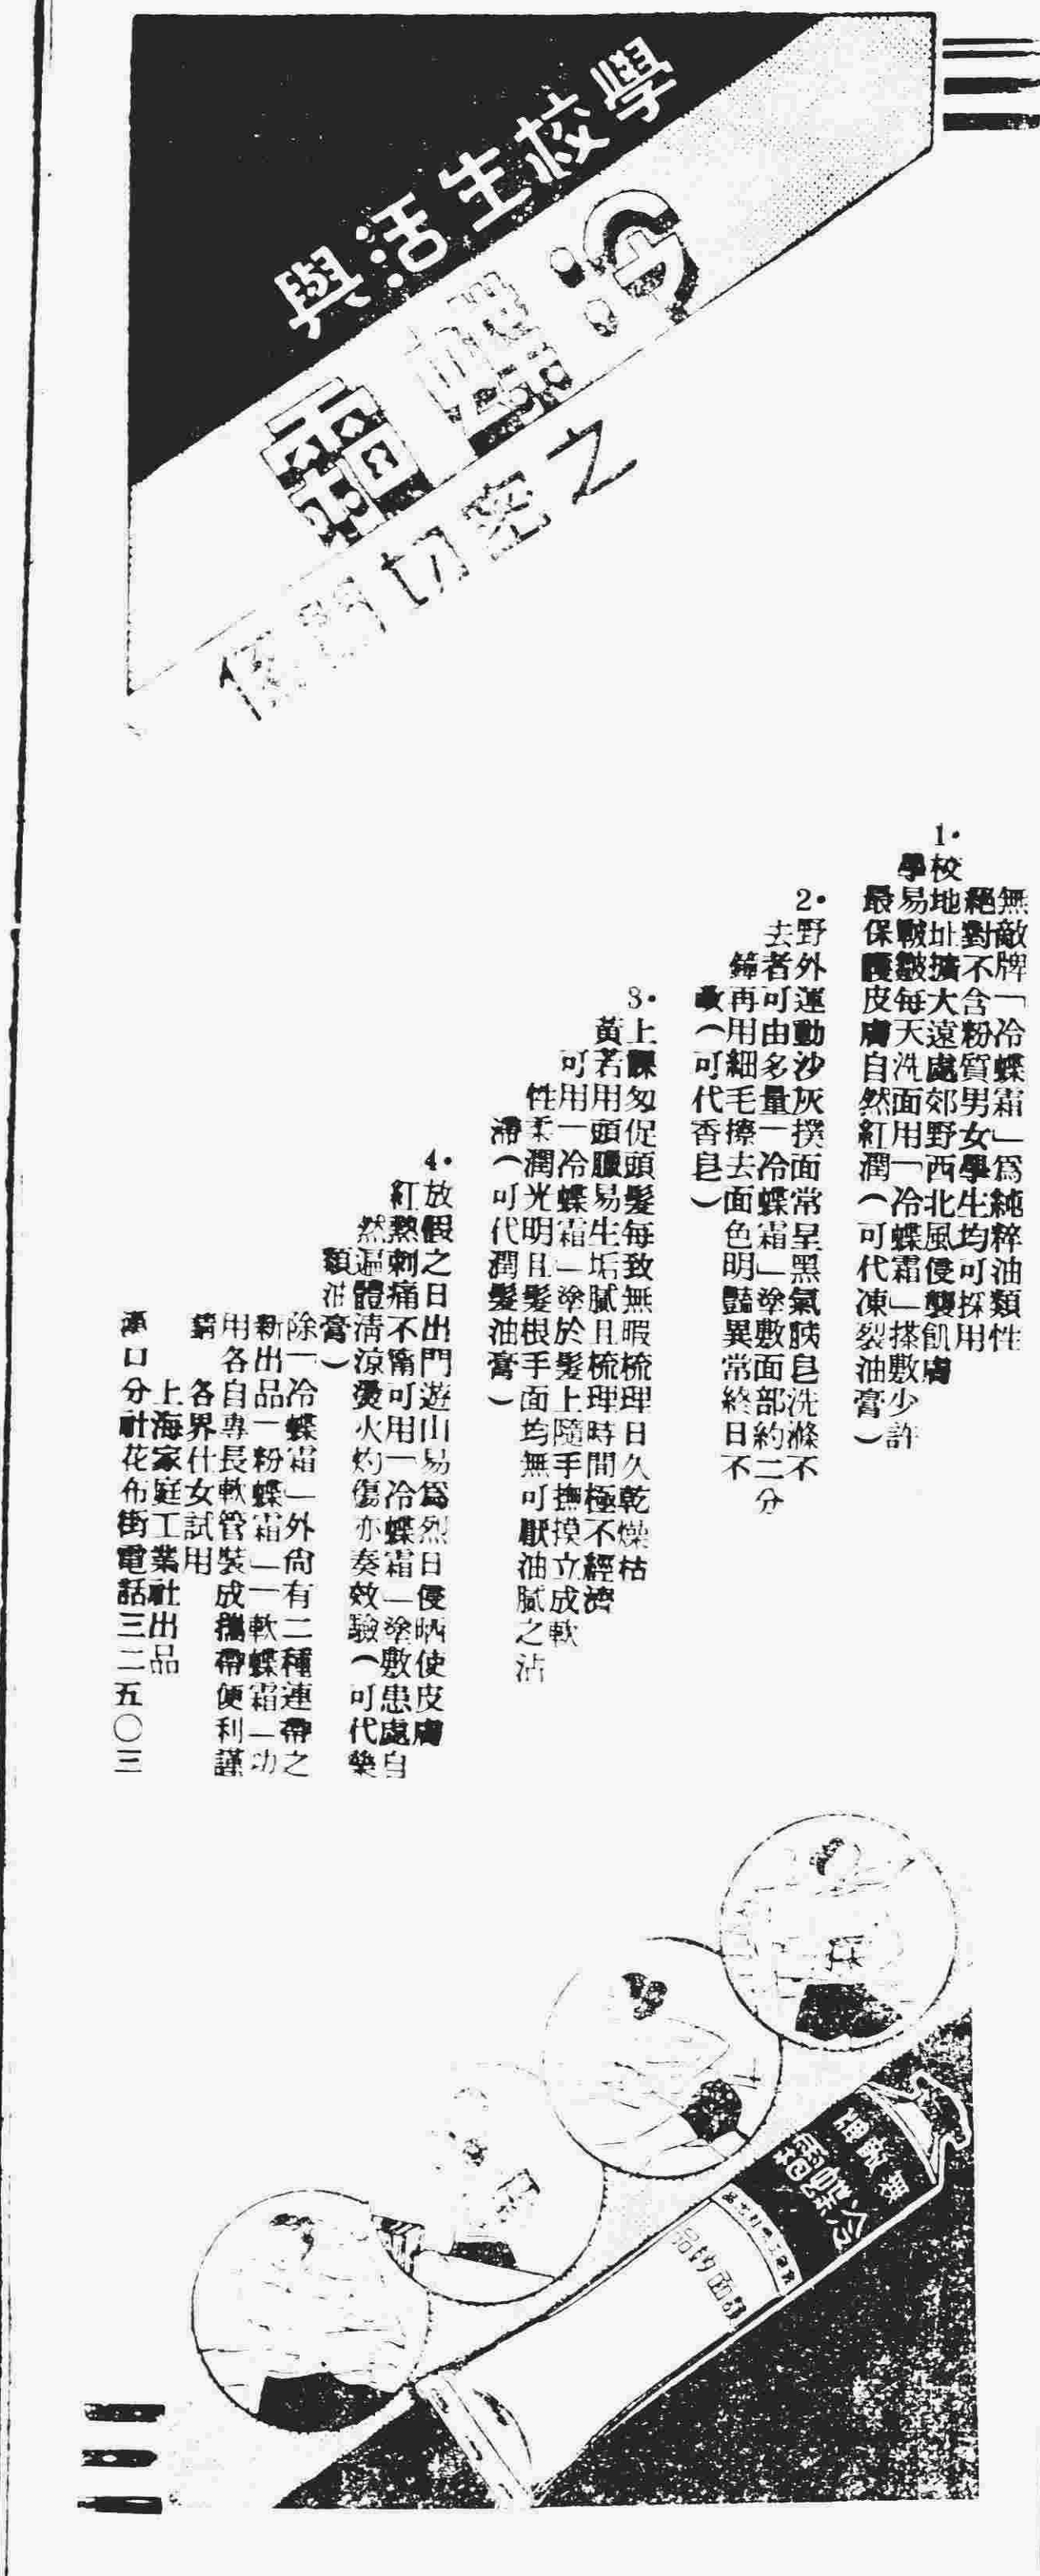 學校生活與
冷蝶霜
之密切關係
無敵牌「冷蝶霜」爲純粹油類性
絕對不含粉質男女學生均可採用
1·校地址擴大遠處郊野西北風侵襲飢膚
學易皸皺每天洗面用「冷蝶霜」搽敷少許
最保護皮膚自然紅潤(可代凍裂油膏)
2·野外運動沙灰撲面常呈黑氣胰皂洗滌不
去者可由多量「冷蝶霜」塗敷面部約二分
鐘再用細毛擦去面色明豔異常終日不
敢(可代香皂)
3·上課匆促頭髮每致無暇梳理日久乾燥枯
黃若用頭臘易生垢膩且梳理時間極不經濟
可用「冷蝶霜」塗於髮上隨手撫摸立成軟
性柔潤光明且髮根手面均無可厭油膩之沾
滯(可代潤髮油膏)
4·放假之日出門遊山易爲烈日侵晒使皮膚
紅熱刺痛不甯可用「冷蝶霜」塗敷患處自
然遍體清涼燙火灼傷亦奏效驗(可代藥
類油膏)
除「冷蝶霜」外尙有二種連帶之
新出品「粉蝶霜」「軟蝶霜」功
用各自專長軟管裝成攜帶便利謹
請 各界仕女試用
上海家庭工業社出品
漢口分社花布街電話三二五〇三
無敵牌
冷蝶霜